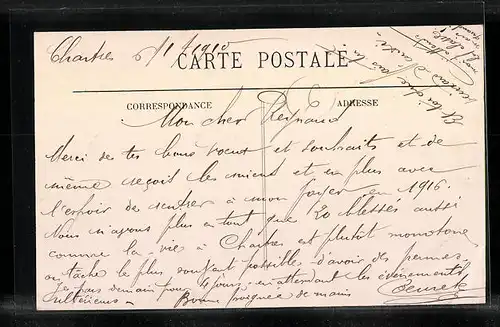 Chartres 5/1 1916
CARTE POSTALE
CORRESPONDANCE
ADRESSE
Mon cher Reynaud
Merci de tes bons vœux et souhaits et de
même reçoit les miens et en plus avec
l'espoir de rentrer à mon foyer en 1916.
Nous n'avons plus en tout que 20 blessés aussi
comme la vie à Chartres est plutôt monotone
on tâche le plus souvent possible d'avoir des permes.
Je pars demain pour 4 jours, en attendant les évènements
ultérieurs - Bonne poignée de mains
Et toi que